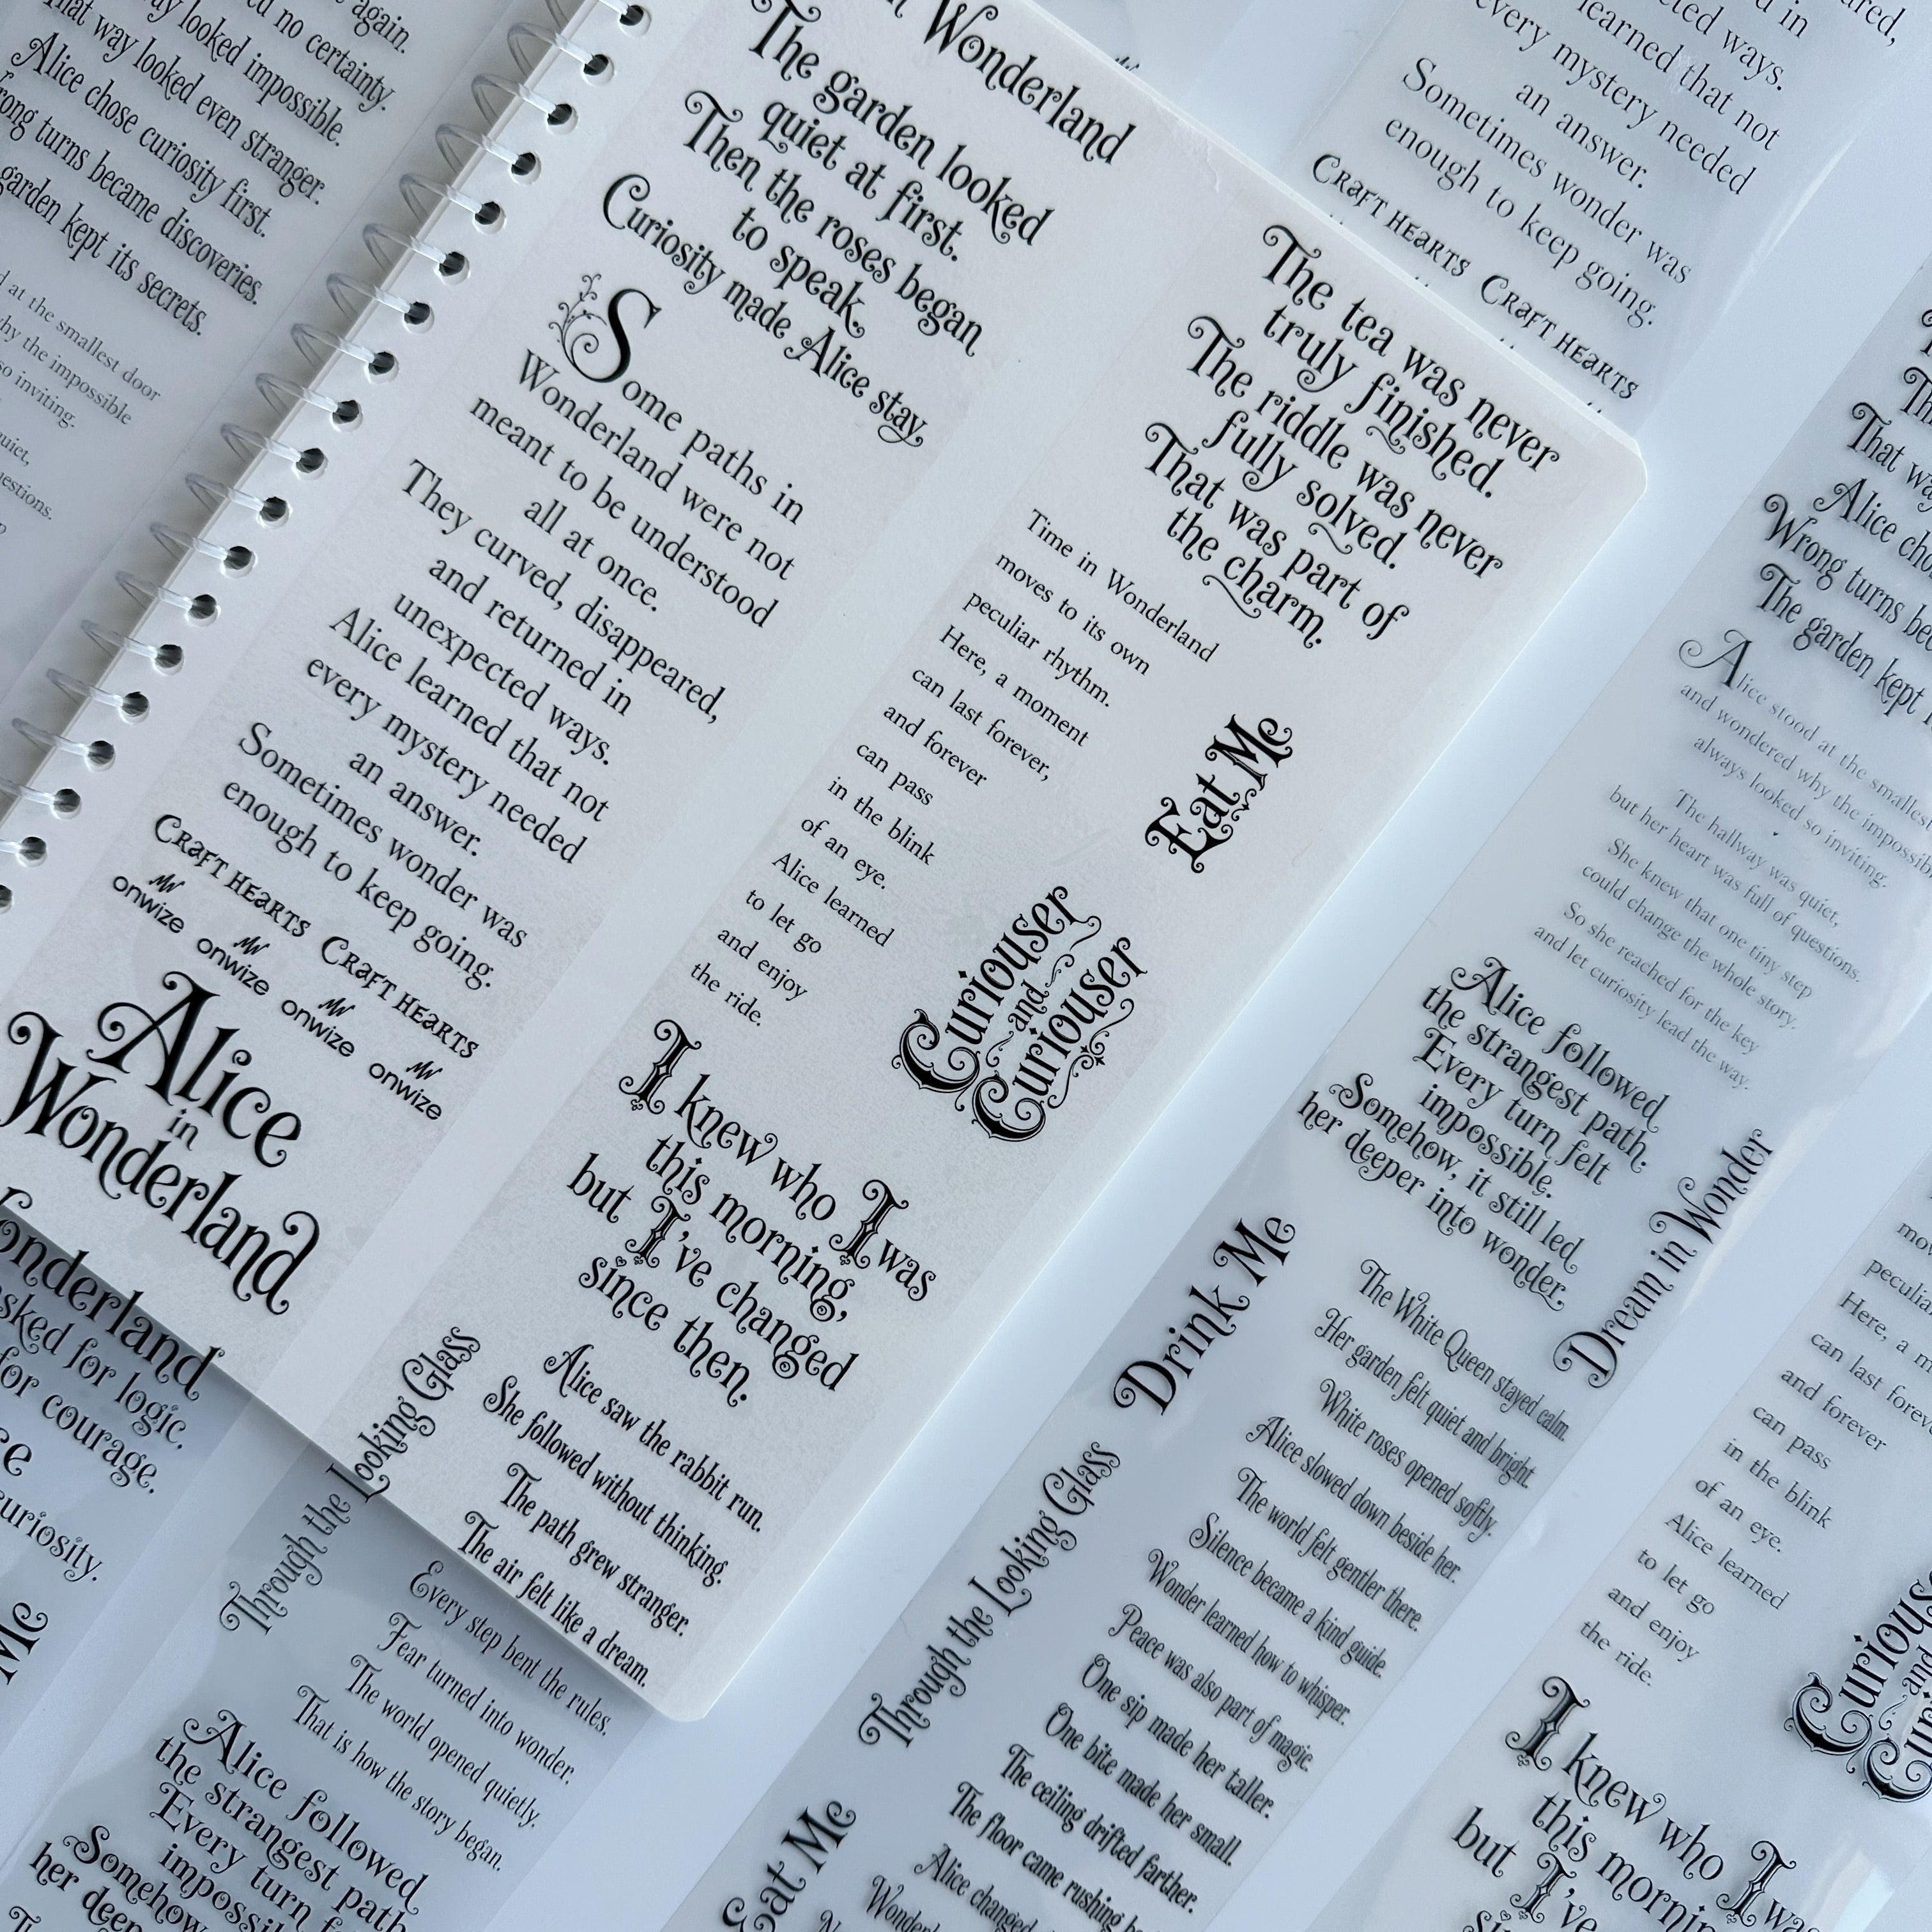 again.
no certainty.
looked impossible.
That way looked even stranger.
Alice chose curiosity first.
turns became discoveries.
garden kept its secrets.
at the smallest door
why the impossible
so inviting.
Wonderland
The garden looked
quiet at first.
Then the roses began
to speak.
Curiosity made Alice stay.
Some paths in
Wonderland were not
meant to be understood
all at once.
They curved, disappeared,
and returned in
unexpected ways.
Alice learned that not
every mystery needed
an answer.
Sometimes wonder was
enough to keep going.
CRAFT HEARTS CRAFT HEARTS
onwize onwize onwize onwize
Alice
in
Wonderland
The tea was never
truly finished.
The riddle was never
fully solved.
That was part of
the charm.
Time in Wonderland
moves to its own
peculiar rhythm.
Here, a moment
can last forever,
and forever
can pass
in the blink
of an eye.
Alice learned
to let go
and enjoy
the ride.
Eat Me
Curiouser
and
Curiouser
I knew who I was
this morning,
but I've changed
since then.
Through the Looking Glass
Alice saw the rabbit run.
She followed without thinking.
The path grew stranger.
The air felt like a dream.
Every step bent the rules.
Fear turned into wonder.
The world opened quietly.
That is how the story began.
Alice followed
the strangest path.
Every turn
Somehow
her
for logic.
for courage.
curiosity.
Me
in
learned that not
every mystery needed
an answer.
Sometimes wonder was
enough to keep going.
CRAFT HEARTS CRAFT HEARTS
That
Alice
Wrong turns
The garden kept
Alice stood at the smallest
and wondered why the
always looked so inviting.
The hallway was quiet,
but her heart was full of questions.
She knew that one tiny step
could change the whole story.
So she reached for the key
and let curiosity lead the way.
Alice followed
the strangest path.
Every turn felt
impossible.
Somehow, it still led
her deeper into wonder.
Dream in Wonder
Drink Me
The White Queen stayed calm.
Her garden felt quiet and bright.
White roses opened softly.
Alice slowed down beside her.
The world felt gentler there.
Silence became a kind guide.
Wonder learned how to whisper.
Peace was also part of magic.
One sip made her taller.
One bite made her small.
The ceiling drifted farther.
The floor came rushing
Alice changed
Through the Looking Glass
Eat Me
Here, a
can last
and forever
can pass
in the blink
of an eye.
Alice learned
to let go
and enjoy
the ride.
I knew who I was
this
but I've